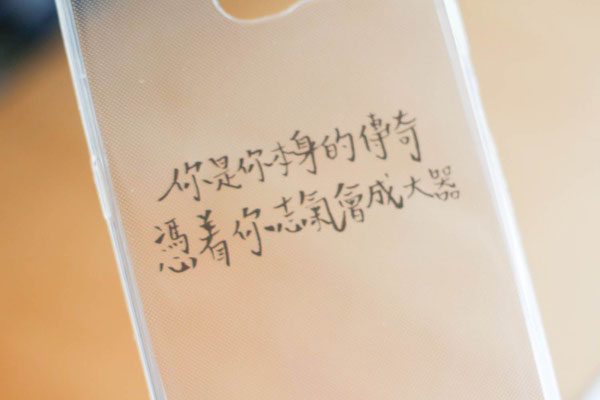 你是你本身的傳奇
憑着你志氣會成大器